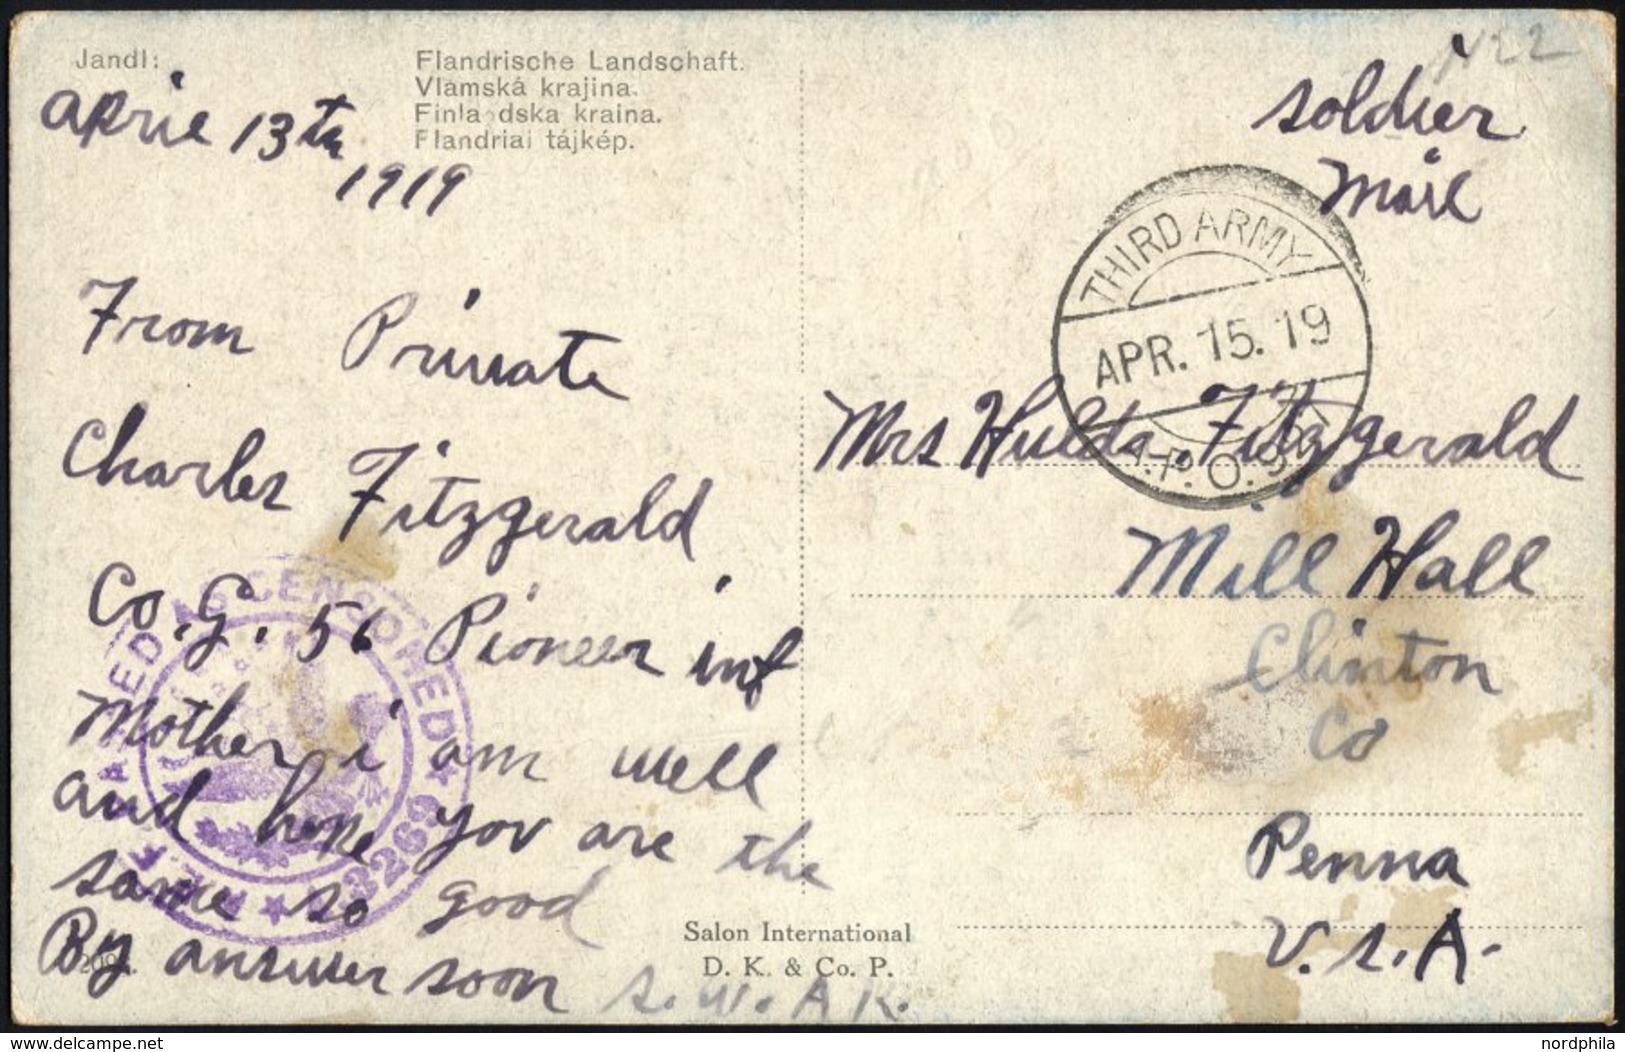 Jandl:
Flandrische Landschaft.
Vlámská krajina.
Finla dska kraina.
Flandriai tájkép.
aprie 13th
1919
From Private
Charles Fitzgerald
Co. G. 56 Pioneer inf
Mother i am well
and hope yov are the
same so good
By answer soon
S. W. A. K.
A.E.F. PASSED AS CENSORED
3269
Salon International
D. K. & Co. P.
N22
soldier
Mail
THIRD ARMY
APR. 15. 19
A.P.O.
Mrs Hulda Fitzgerald
Mill Hall
Clinton
Co
Penna
V.S.A.
www.delcampe.net
nordphila